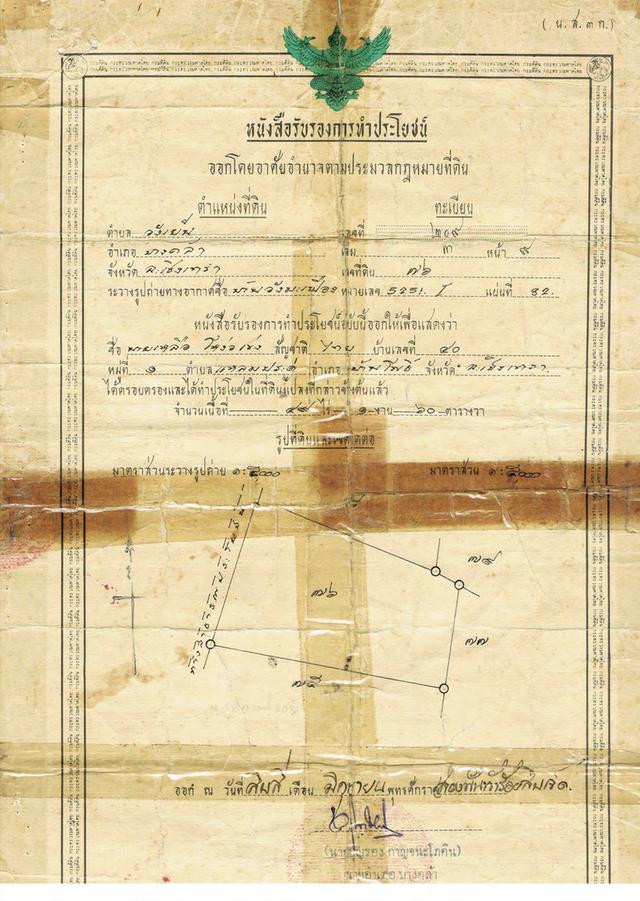 ( น.ส. ๓ ก. )
หนังสือรับรองการทำประโยชน์
ออกโดยอาศัยอำนาจตามประมวลกฎหมายที่ดิน
ตำแหน่งที่ดิน ทะเบียน
ตำบล วังเย็น เลขที่ ๒๐๙
อำเภอ บางคล้า เล่ม ๓ หน้า ๙
จังหวัด ฉะเชิงเทรา เลขที่ดิน ๗๖
ระวางรูปถ่ายทางอากาศชื่อ บ้านวังมะเฟือง หมายเลข 5251. I แผ่นที่ 82.
หนังสือรับรองการทำประโยชน์ฉบับนี้ออกให้เพื่อแสดงว่า
ชื่อ สัญชาติ ไทย บ้านเลขที่ ๔๐
หมู่ที่ ๑ ตำบล แหลมประดู่ อำเภอ บ้านโพธิ์ จังหวัด ฉะเชิงเทรา
ได้ครอบครองและได้ทำประโยชน์ในที่ดินแปลงที่กล่าวข้างต้นแล้ว
จำนวนเนื้อที่ ๔๙ ไร่ ๑ งาน ๖๐ ตารางวา
รูปที่ดินและเขตติดต่อ
มาตราส่วนระวางรูปถ่าย ๑: ๕๐๐๐ มาตราส่วน ๑: ๕๐๐๐
๗๘
๗๖
๗๗
๗๕
ออก ณ วันที่ สิบสี่ เดือน มิถุนายน พุทธศักราช สองพันห้าร้อยสิบเจ็ด.
นายอำเภอ บางคล้า